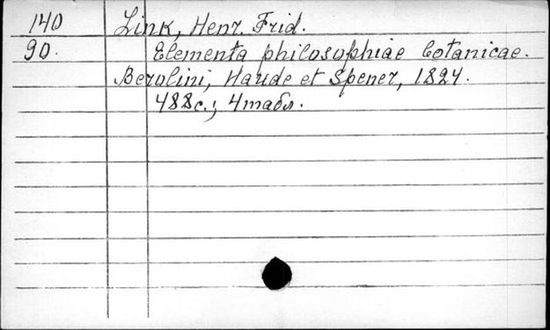 140 Link, Henr. Frid.
90. Elementa philosophiae botanicae.
Berolini, Haude et Spener, 1824.
488с.; 4табл.